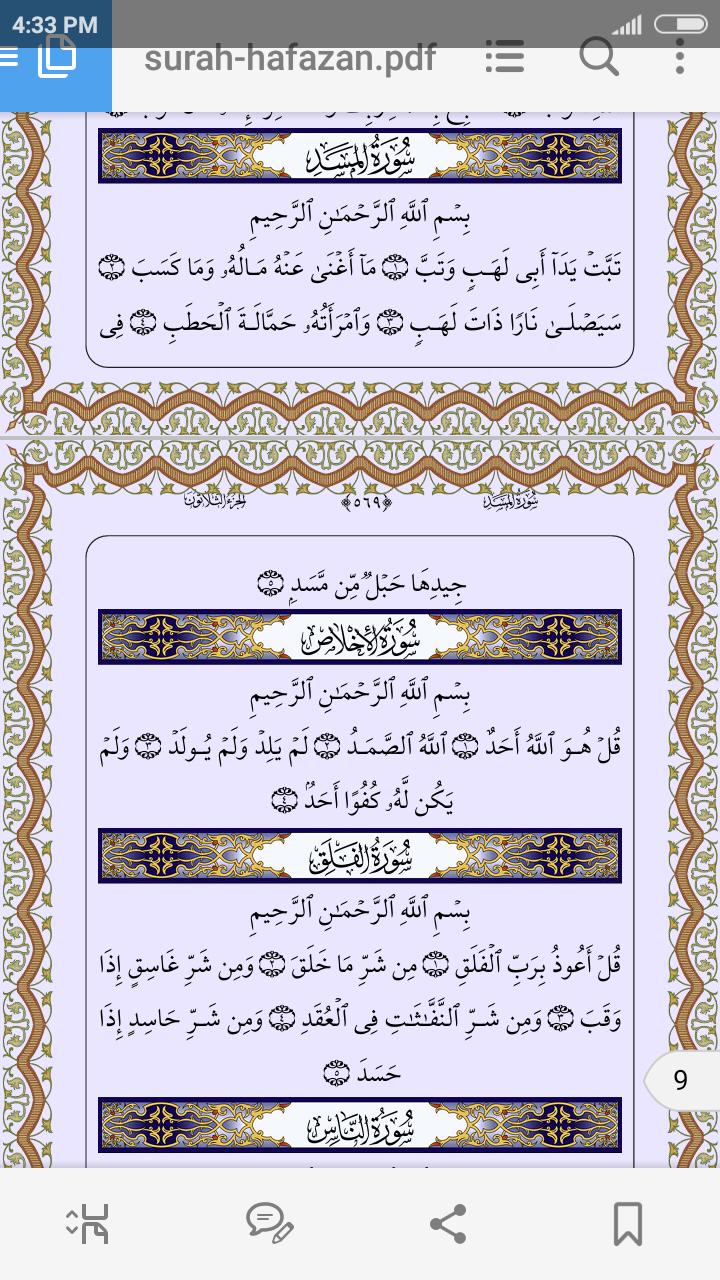 4:33 PM
surah-hafazan.pdf
سُورَةُ المَسَدِ
بِسْمِ ٱللَّهِ ٱلرَّحْمَـٰنِ ٱلرَّحِيمِ
تَبَّتْ يَدَآ أَبِى لَهَبٍ وَتَبَّ ﴿١﴾ مَآ أَغْنَىٰ عَنْهُ مَالُهُۥ وَمَا كَسَبَ ﴿٢﴾
سَيَصْلَىٰ نَارًا ذَاتَ لَهَبٍ ﴿٣﴾ وَٱمْرَأَتُهُۥ حَمَّالَةَ ٱلْحَطَبِ ﴿٤﴾ فِى
سُورَةُ المَسَدِ ﴿٥٦٩﴾ الجزءُ الثَّلَاثُونَ
جِيدِهَا حَبْلٌ مِّن مَّسَدٍ ﴿٥﴾
سُورَةُ الإِخْلَاصِ
بِسْمِ ٱللَّهِ ٱلرَّحْمَـٰنِ ٱلرَّحِيمِ
قُلْ هُوَ ٱللَّهُ أَحَدٌ ﴿١﴾ ٱللَّهُ ٱلصَّمَدُ ﴿٢﴾ لَمْ يَلِدْ وَلَمْ يُولَدْ ﴿٣﴾ وَلَمْ
يَكُن لَّهُۥ كُفُوًا أَحَدٌۢ ﴿٤﴾
سُورَةُ الفَلَقِ
بِسْمِ ٱللَّهِ ٱلرَّحْمَـٰنِ ٱلرَّحِيمِ
قُلْ أَعُوذُ بِرَبِّ ٱلْفَلَقِ ﴿١﴾ مِن شَرِّ مَا خَلَقَ ﴿٢﴾ وَمِن شَرِّ غَاسِقٍ إِذَا
وَقَبَ ﴿٣﴾ وَمِن شَرِّ ٱلنَّفَّـٰثَـٰتِ فِى ٱلْعُقَدِ ﴿٤﴾ وَمِن شَرِّ حَاسِدٍ إِذَا
حَسَدَ ﴿٥﴾
9
سُورَةُ النَّاسِ